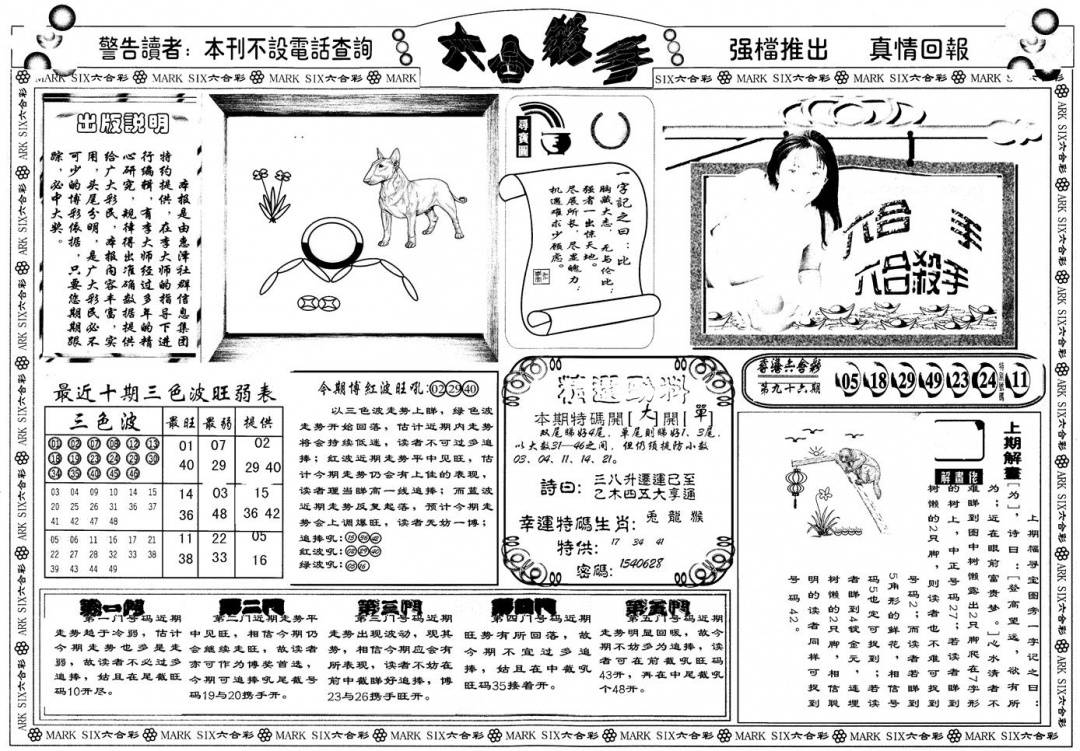 警告讀者：本刊不設電話查詢
六合殺手
强檔推出 真情回報
MARK SIX六合彩 MARK SIX六合彩 MARK SIX六合彩 MARK
SIX六合彩 MARK SIX六合彩 MARK SIX六合彩 MARK
出版説明
本报是由惠泽社群信息集团
特约提供，在李大师的指导下进
行编辑，有李大师经过多年的精
心研究，规律得出准确数据提供
给广大彩民，本报内容丰富，实
用，头尾分明，是广大彩民必不
可少的博彩依据，只要您期期跟
踪，必中大奖。
尋寶圖
一字記之曰：比
胸藏大志，无与伦比；
强者一出惊天地。
尽展所长，尽显魄力；
机遇难求少顾虑。
六合 手
六合殺手
香港六合彩
第九十六期
05 18 29 49 23 24
特別號碼
11
最近十期三色波旺弱表
三色波 最旺 最弱 提供
01 02 07 08 12 13
18 19 23 24 29 30
34 35 40 45 46
01 07 02
40 29 29 40
03 04 09 10 14 15
20 25 26 31 36 37
41 42 47 48
14 03 15
36 48 36 42
05 06 11 16 17 21
22 27 28 32 33 38
39 43 44 49
11 22 05
38 33 16
今期博红波旺吼：02 29 40
以三色波走势上睇，绿色波
走势开始回落，估计近期内走势
将会持续低迷，读者不可过多追
捧；红波近期走势平中见旺，估
计今期走势仍会有上佳的表现，
读者理当睇高一线追捧；而蓝波
近期走势反复起落，预计今期走
势会上调爆旺，读者无妨一博；
追捧吼：15 36 42
红波吼：02 29 40
绿波吼：05 16
精選動料
本期特碼開[大]開[單]
双尾睇好4尾，单尾则睇好1、3尾，
以大数31—46之间，但仍须提防小数
03、04、11、14、21。
詩曰：三八升遷運已至
乙木四五大享通
幸運特碼生肖：兎 龍 猴
特供：17 34 41
密碼：1540628
上期解畫
解畫佬
上期福寻宝图旁一字记之曰：
[为]，诗曰：[登高望远，欲有所
为；近在眼前富贵梦。]心水清者不
难睇到图中树懒露出2只脚爬在7字形
的树上，中正号码27；若读者睇到
树懒的2只脚，则读者也不难可找到
号码2；而读者若睇到
5角形的鲜花，相信号
码5也定可找到；若读
者睇到4锭金元，连埋
树懒的2只脚，相信聪
明的读者同样可找到
号码42。
第一門
第一门号码近期
走势趋于冷弱，估计
今期走势也多是走
弱，故读者不必过多
追捧，姑且在尾截旺
码10开尽。
第二門
第二门近期走势平
中见旺，相信今期仍
会继续走旺，故读者
亦可作为博奖首选，
今期可追捧吼尾截号
码19与20携手开。
第三門
第三门号码近期
走势出现波动，观其
势，相信今期应会有
所表现，读者不妨在
前中截睇好追捧，博
23与26携手旺开。
第四門
第四门号码近期
旺势有所回落，故
今期不宜过多追
捧，姑且在中截吼
旺码35接着开。
第五門
第五门号码近期
走势明显回暖，故今
期不妨多为追捧，读
者可在前截吼旺码
43开，再在中尾截吼
个48开。
MARK SIX六合彩 MARK SIX六合彩 MARK SIX六合彩 MARK SIX六合彩 MARK SIX六合彩 MARK SIX六合彩 MARK SIX六合彩 MARK SIX六合彩